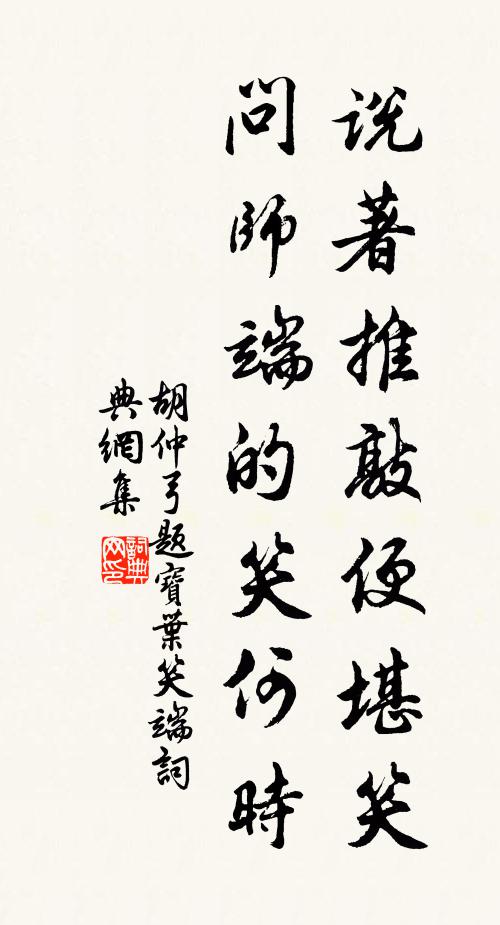 説著推敲便堪笑
問師端的笑何時
胡仲弓題寶葉笑端詞
典網集
詞典網印